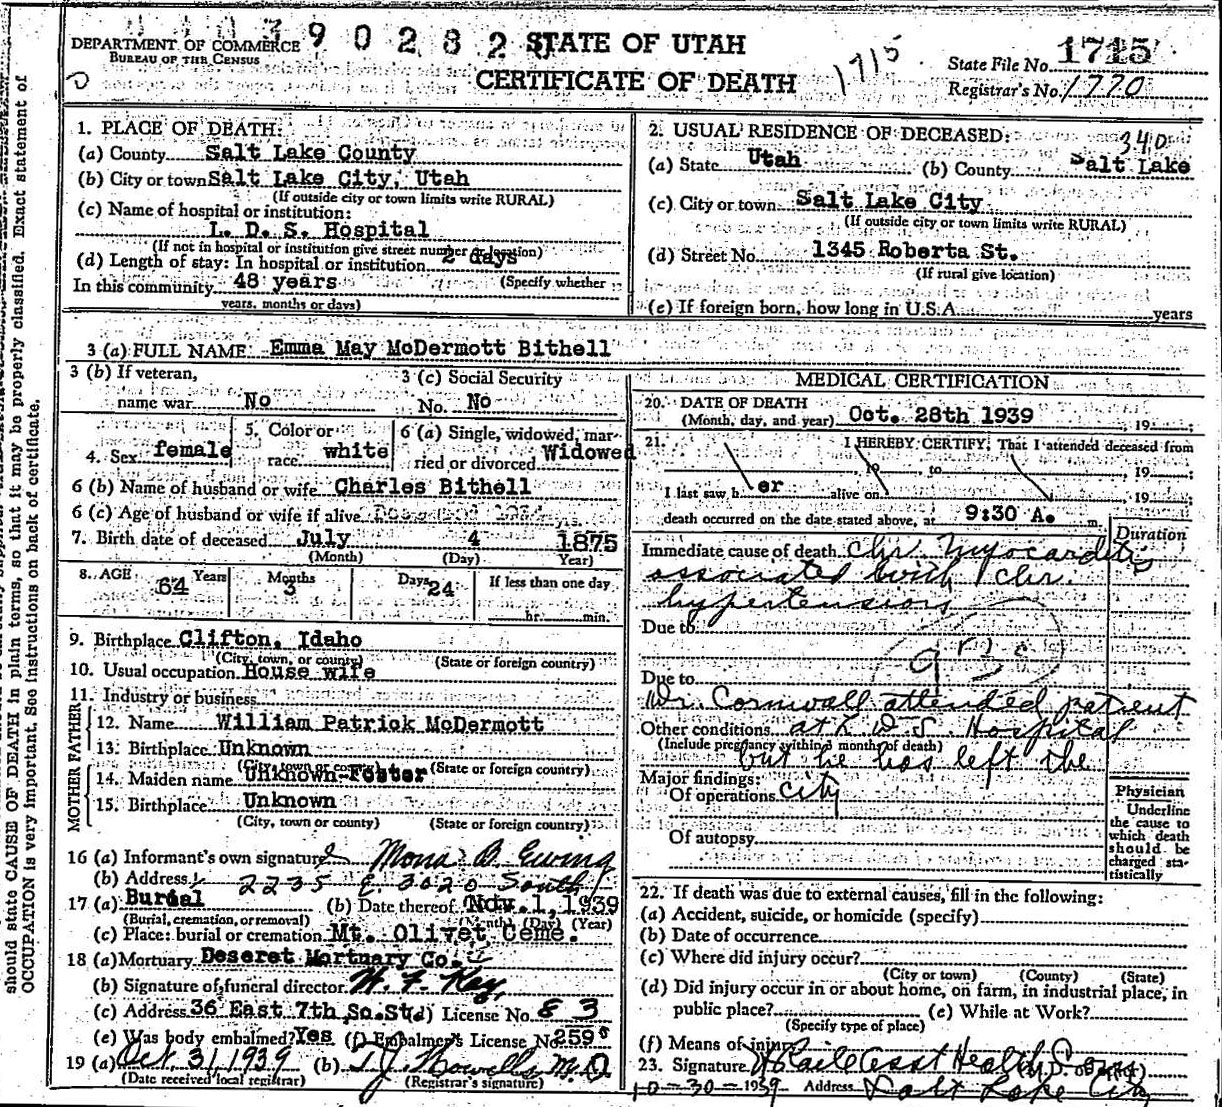 390282
STATE OF UTAH
CERTIFICATE OF DEATH
DEPARTMENT OF COMMERCE
BUREAU OF THE CENSUS
1715
State File No. 1715
Registrar's No. 1770
1. PLACE OF DEATH:
(a) County Salt Lake County
(b) City or town Salt Lake City, Utah
(If outside city or town limits write RURAL)
(c) Name of hospital or institution:
L. D. S. Hospital
(If not in hospital or institution give street number or location)
(d) Length of stay: In hospital or institution 2 days
In this community 48 years (Specify whether
years, months or days)
2. USUAL RESIDENCE OF DECEASED:
340
(a) State Utah (b) County Salt Lake
(c) City or town Salt Lake City
(If outside city or town limits write RURAL)
(d) Street No. 1345 Roberta St.
(If rural give location)
(e) If foreign born, how long in U.S.A. years
3 (a) FULL NAME Emma May McDermott Bithell
3 (b) If veteran, name war No
3 (c) Social Security No. No
4. Sex female
5. Color or race white
6 (a) Single, widowed, married or divorced Widowed
6 (b) Name of husband or wife Charles Bithell
6 (c) Age of husband or wife if alive
7. Birth date of deceased July 4 1875
(Month) (Day) Year)
8. AGE 64 Years 3 Months 24 Days If less than one day
hr. min.
9. Birthplace Clifton, Idaho
(City, town, or county) (State or foreign country)
10. Usual occupation House wife
11. Industry or business
FATHER
12. Name William Patrick McDermott
13. Birthplace Unknown
(City, town or county) (State or foreign country)
MOTHER
14. Maiden name Unknown-Foster
15. Birthplace Unknown
(City, town or county) (State or foreign country)
16 (a) Informant's own signature Mona B. Ewing
(b) Address 2235 E. 3020 South
17 (a) Burial (b) Date thereof Nov. 1, 1939
(Burial, cremation, or removal) (Month) (Day) (Year)
(c) Place: burial or cremation Mt. Olivet Ceme.
18 (a) Mortuary Deseret Mortuary Co.
(b) Signature of funeral director H. F. Kay
(c) Address 36 East 7th So. St. (d) License No. 83
(e) Was body embalmed? Yes (f) Embalmer's License No. 259
19 (a) Oct. 31, 1939 (b) T. J. Howells M.D.
(Date received local registrar) (Registrar's signature)
MEDICAL CERTIFICATION
20. DATE OF DEATH
(Month, day, and year) Oct. 28th 1939, 19
21. I HEREBY CERTIFY, That I attended deceased from
, 19 , to , 19 ;
I last saw h er alive on , 19 ;
death occurred on the date stated above, at 9:30 A. m.
Duration
Immediate cause of death Chr. Myocarditis
associated with chr.
hypertension
Due to
Due to
Dr. Cornwall attended patient
Other conditions at L. D. S. Hospital
(Include pregnancy within 3 months of death)
but he has left the
Major findings:
Of operations city
Of autopsy
Physician
Underline the cause to which death should be charged statistically
22. If death was due to external causes, fill in the following:
(a) Accident, suicide, or homicide (specify)
(b) Date of occurrence
(c) Where did injury occur?
(City or town) (County) (State)
(d) Did injury occur in or about home, on farm, in industrial place, in
public place? (e) While at Work?
(Specify type of place)
(f) Means of injury
23. Signature Asst Health
10-30-1939 Address Salt Lake City
should state CAUSE OF DEATH in plain terms, so that it may be properly classified. Exact statement of
OCCUPATION is very important. See instructions on back of certificate.